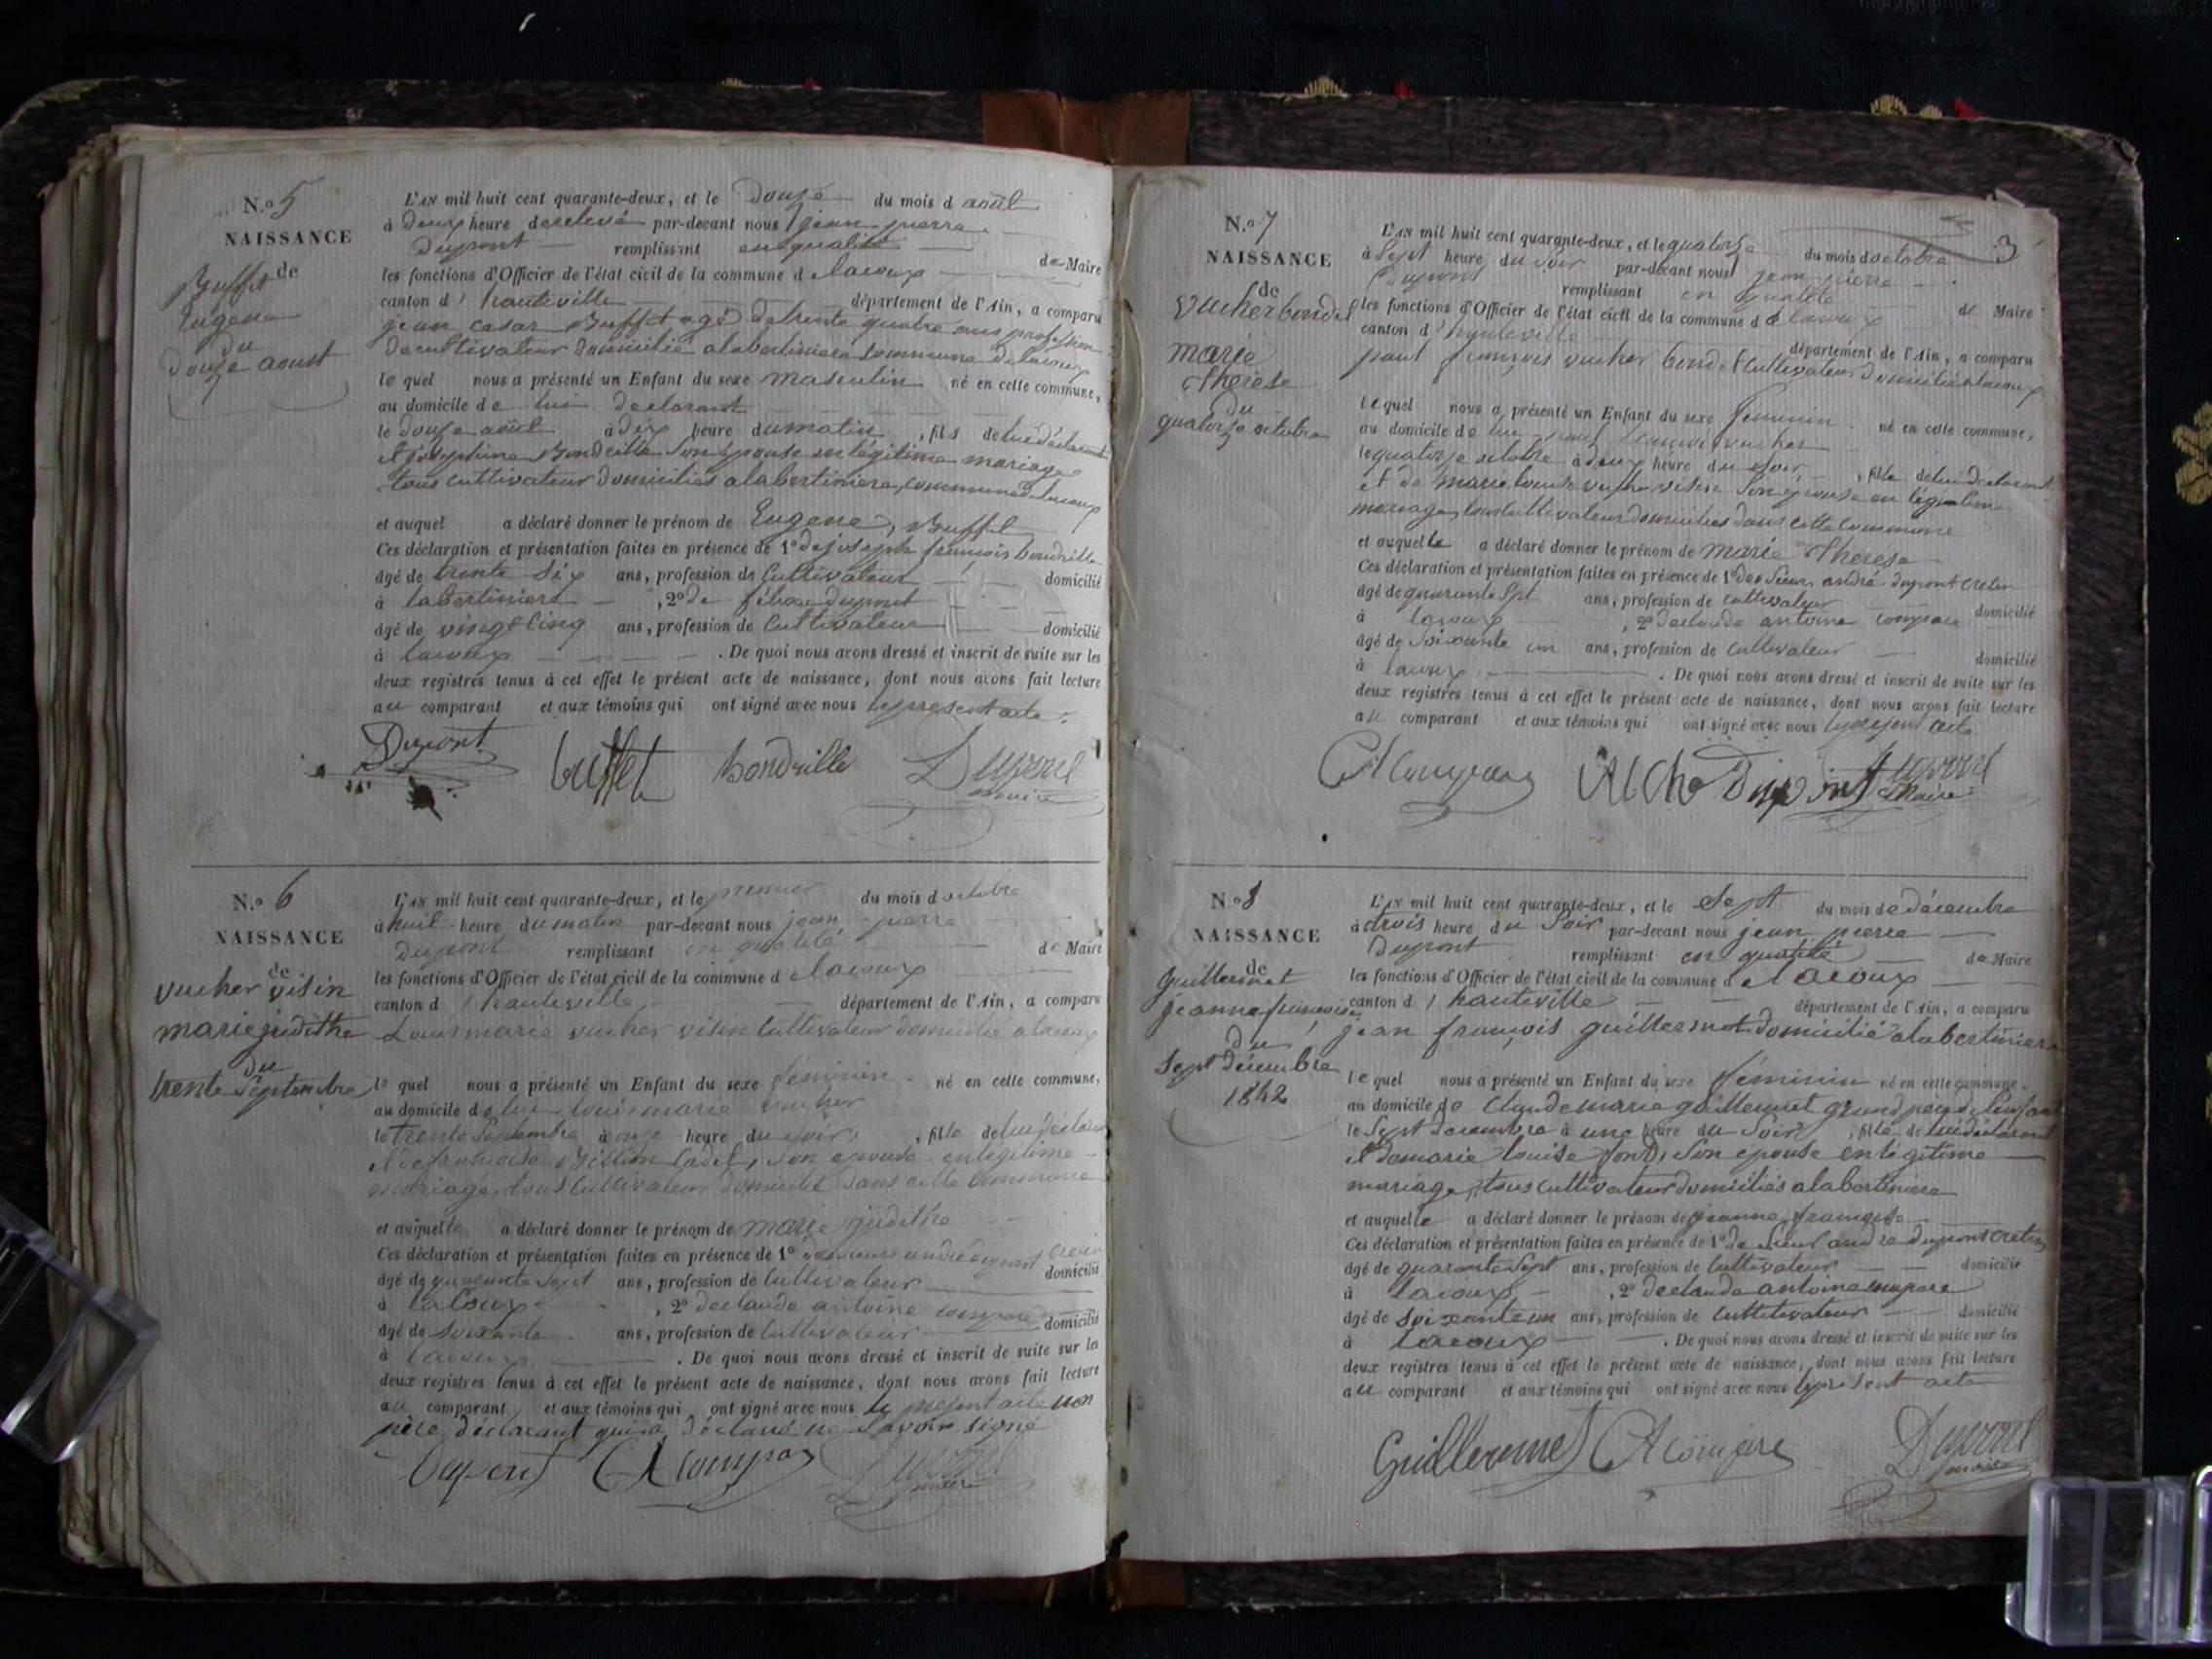 N.º 5
NAISSANCE
de
Buffet
Eugene
du
Douze aoust
L'AN mil huit cent quarante-deux, et le Douze du mois d août
à Deux heure derelevé par-devant nous jean pierre
Dupont remplissant en qualité de Maire
les fonctions d'Officier de l'état civil de la commune d elacoux
canton d'hauteville département de l'Ain, a comparu
jean cesar Buffet agé detrente quatre ans profession
decultivateur domicilié alabertiniere commune delacoux
lequel nous a présenté un Enfant du sexe masculin né en cette commune,
au domicile de lui declarant
le douze août à dix heure dumatin, fils deluidéclarant
et josephine Bondrille son épouse enlégitime mariage
tous cultivateur domiciliés alabertiniere, commune delacoux
et auquel a déclaré donner le prénom de Eugene, Buffet
Ces déclaration et présentation faites en présence de 1º de joseph françois bondrille
âgé de trente six ans, profession de Cultivateur domicilié
à labertiniere, 2º de Dupont
âgé de vingt cinq ans, profession de Cultivateur domicilié
à lacoux. De quoi nous avons dressé et inscrit de suite sur les
deux registres tenus à cet effet le présent acte de naissance, dont nous avons fait lecture
au comparant et aux témoins qui ont signé avec nous lepresent acte.
Dupont buffet bondrille Dupont
maire
N.º 6
NAISSANCE
de
vucher visin
marie judithe
du
trente Septembre
L'AN mil huit cent quarante-deux, et le premier du mois d octobre
à huit heure du matin par-devant nous jean pierre
Dupont remplissant en qualité de Maire
les fonctions d'Officier de l'état civil de la commune d elacoux
canton d'hauteville département de l'Ain, a comparu
Louis marie vucher visin Cultivateur domicilié a lacoux
lequel nous a présenté un Enfant du sexe féminin né en cette commune,
au domicile de lui louis marie vucher
le trente Septembre à onze heure du soir, fille delui déclarant
et de françoise Billion Cadet, son epouse enlegitime
mariage, tous Cultivateur domicilié dans cette Commune
et auquelle a déclaré donner le prénom de marie judithe
Ces déclaration et présentation faites en présence de 1º de andré dupont cretin
âgé de quarante sept ans, profession de Cultivateur domicilié
à laCoux, 2º declaude antoine compare
âgé de soixante ans, profession de Cultivateur domicilié
à lacoux. De quoi nous avons dressé et inscrit de suite sur les
deux registres tenus à cet effet le présent acte de naissance, dont nous avons fait lecture
au comparant et aux témoins qui ont signé avec nous le present acte non
père déclarant qui a déclaré ne Savoir signé
Dupont Dupont
maire
3
N.º 7
NAISSANCE
de
Vucher bondet
marie
Therese
du
quatorze octobre
L'AN mil huit cent quarante-deux, et le quatorze du mois d octobre
à Sept heure du soir par-devant nous jean pierre
Dupont remplissant en qualité de Maire
les fonctions d'Officier de l'état civil de la commune d elacoux
canton d'hauteville département de l'Ain, a comparu
paul françois vucher bondet Cultivateur domicilié alacoux
lequel nous a présenté un Enfant du sexe féminin né en cette commune,
au domicile de lui paul françois vucher
le quatorze octobre à deux heure du Soir, fille delui declarant
et de marie louise vucher visin Son épouse en légitime
mariage, tous Cultivateur domiciliés dans cette Commune
et auquelle a déclaré donner le prénom de marie Therese
Ces déclaration et présentation faites en présence de 1º des Sieur andré dupont Cretin
âgé de quarante Sept ans, profession de Cultivateur domicilié
à lacoux, 2º declaude antoine compare
âgé de Soixante un ans, profession de Cultivateur domicilié
à lacoux. De quoi nous avons dressé et inscrit de suite sur les
deux registres tenus à cet effet le présent acte de naissance, dont nous avons fait lecture
au comparant et aux témoins qui ont signé avec nous lepresent acte
Dupont Dupont
Maire
N.º 8
NAISSANCE
de
guillermet
jeanne françoise
du
Sept décembre
1842
L'AN mil huit cent quarante-deux, et le Sept du mois de décembre
à trois heure du Soir par-devant nous jean pierre
Dupont remplissant en qualité de Maire
les fonctions d'Officier de l'état civil de la commune d elacoux
canton d'hauteville département de l'Ain, a comparu
jean françois guillermet domicilié alabertiniere
lequel nous a présenté un Enfant du sexe féminin né en cette commune,
au domicile de Claude marie guillermet grand père de l'enfant
le Sept decembre à une heure du Soir, fille de lui déclarant
et demarie louise Son epouse enlégitime
mariage, tous Cultivateur domiciliés alabertiniere
et auquelle a déclaré donner le prénom de jeanne françoise
Ces déclaration et présentation faites en présence de 1º de Sieur andre dupont Cretin
âgé de quarante Sept ans, profession de Cultivateur domicilié
à lacoux, 2º declaude antoine compare
âgé de Soixante un ans, profession de Cultivateur domicilié
à lacoux. De quoi nous avons dressé et inscrit de suite sur les
deux registres tenus à cet effet le présent acte de naissance, dont nous avons fait lecture
au comparant et aux témoins qui ont signé avec nous lepresent acte
Guillermet Dupont
maire